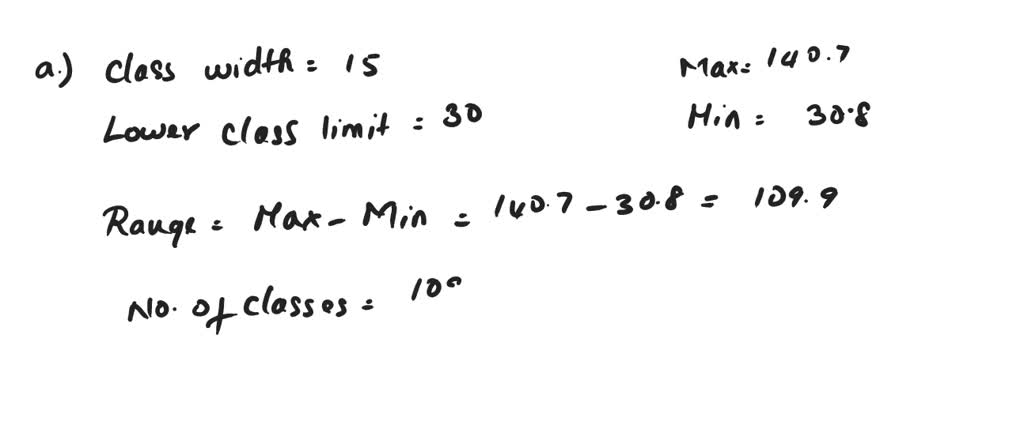 a.) class width = 15 Max = 140.7
Lower class limit = 30 Min = 30.8
Range = Max - Min = 140.7 - 30.8 = 109.9
No. of classes = 10